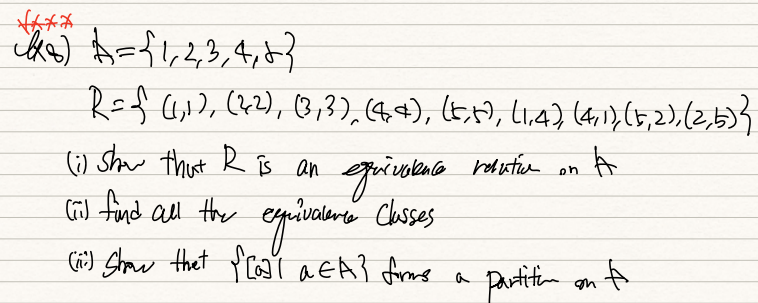 A={1,2,3,4,5}
R={ (1,1), (2,2), (3,3), (4,4), (5,5), (1,4), (4,1), (5,2), (2,5)}
(i) Show that R is an equivalence relation on A
(ii) find all the equivalence classes
(iii) Show that {[a] | a ∈ A} forms a partition on A